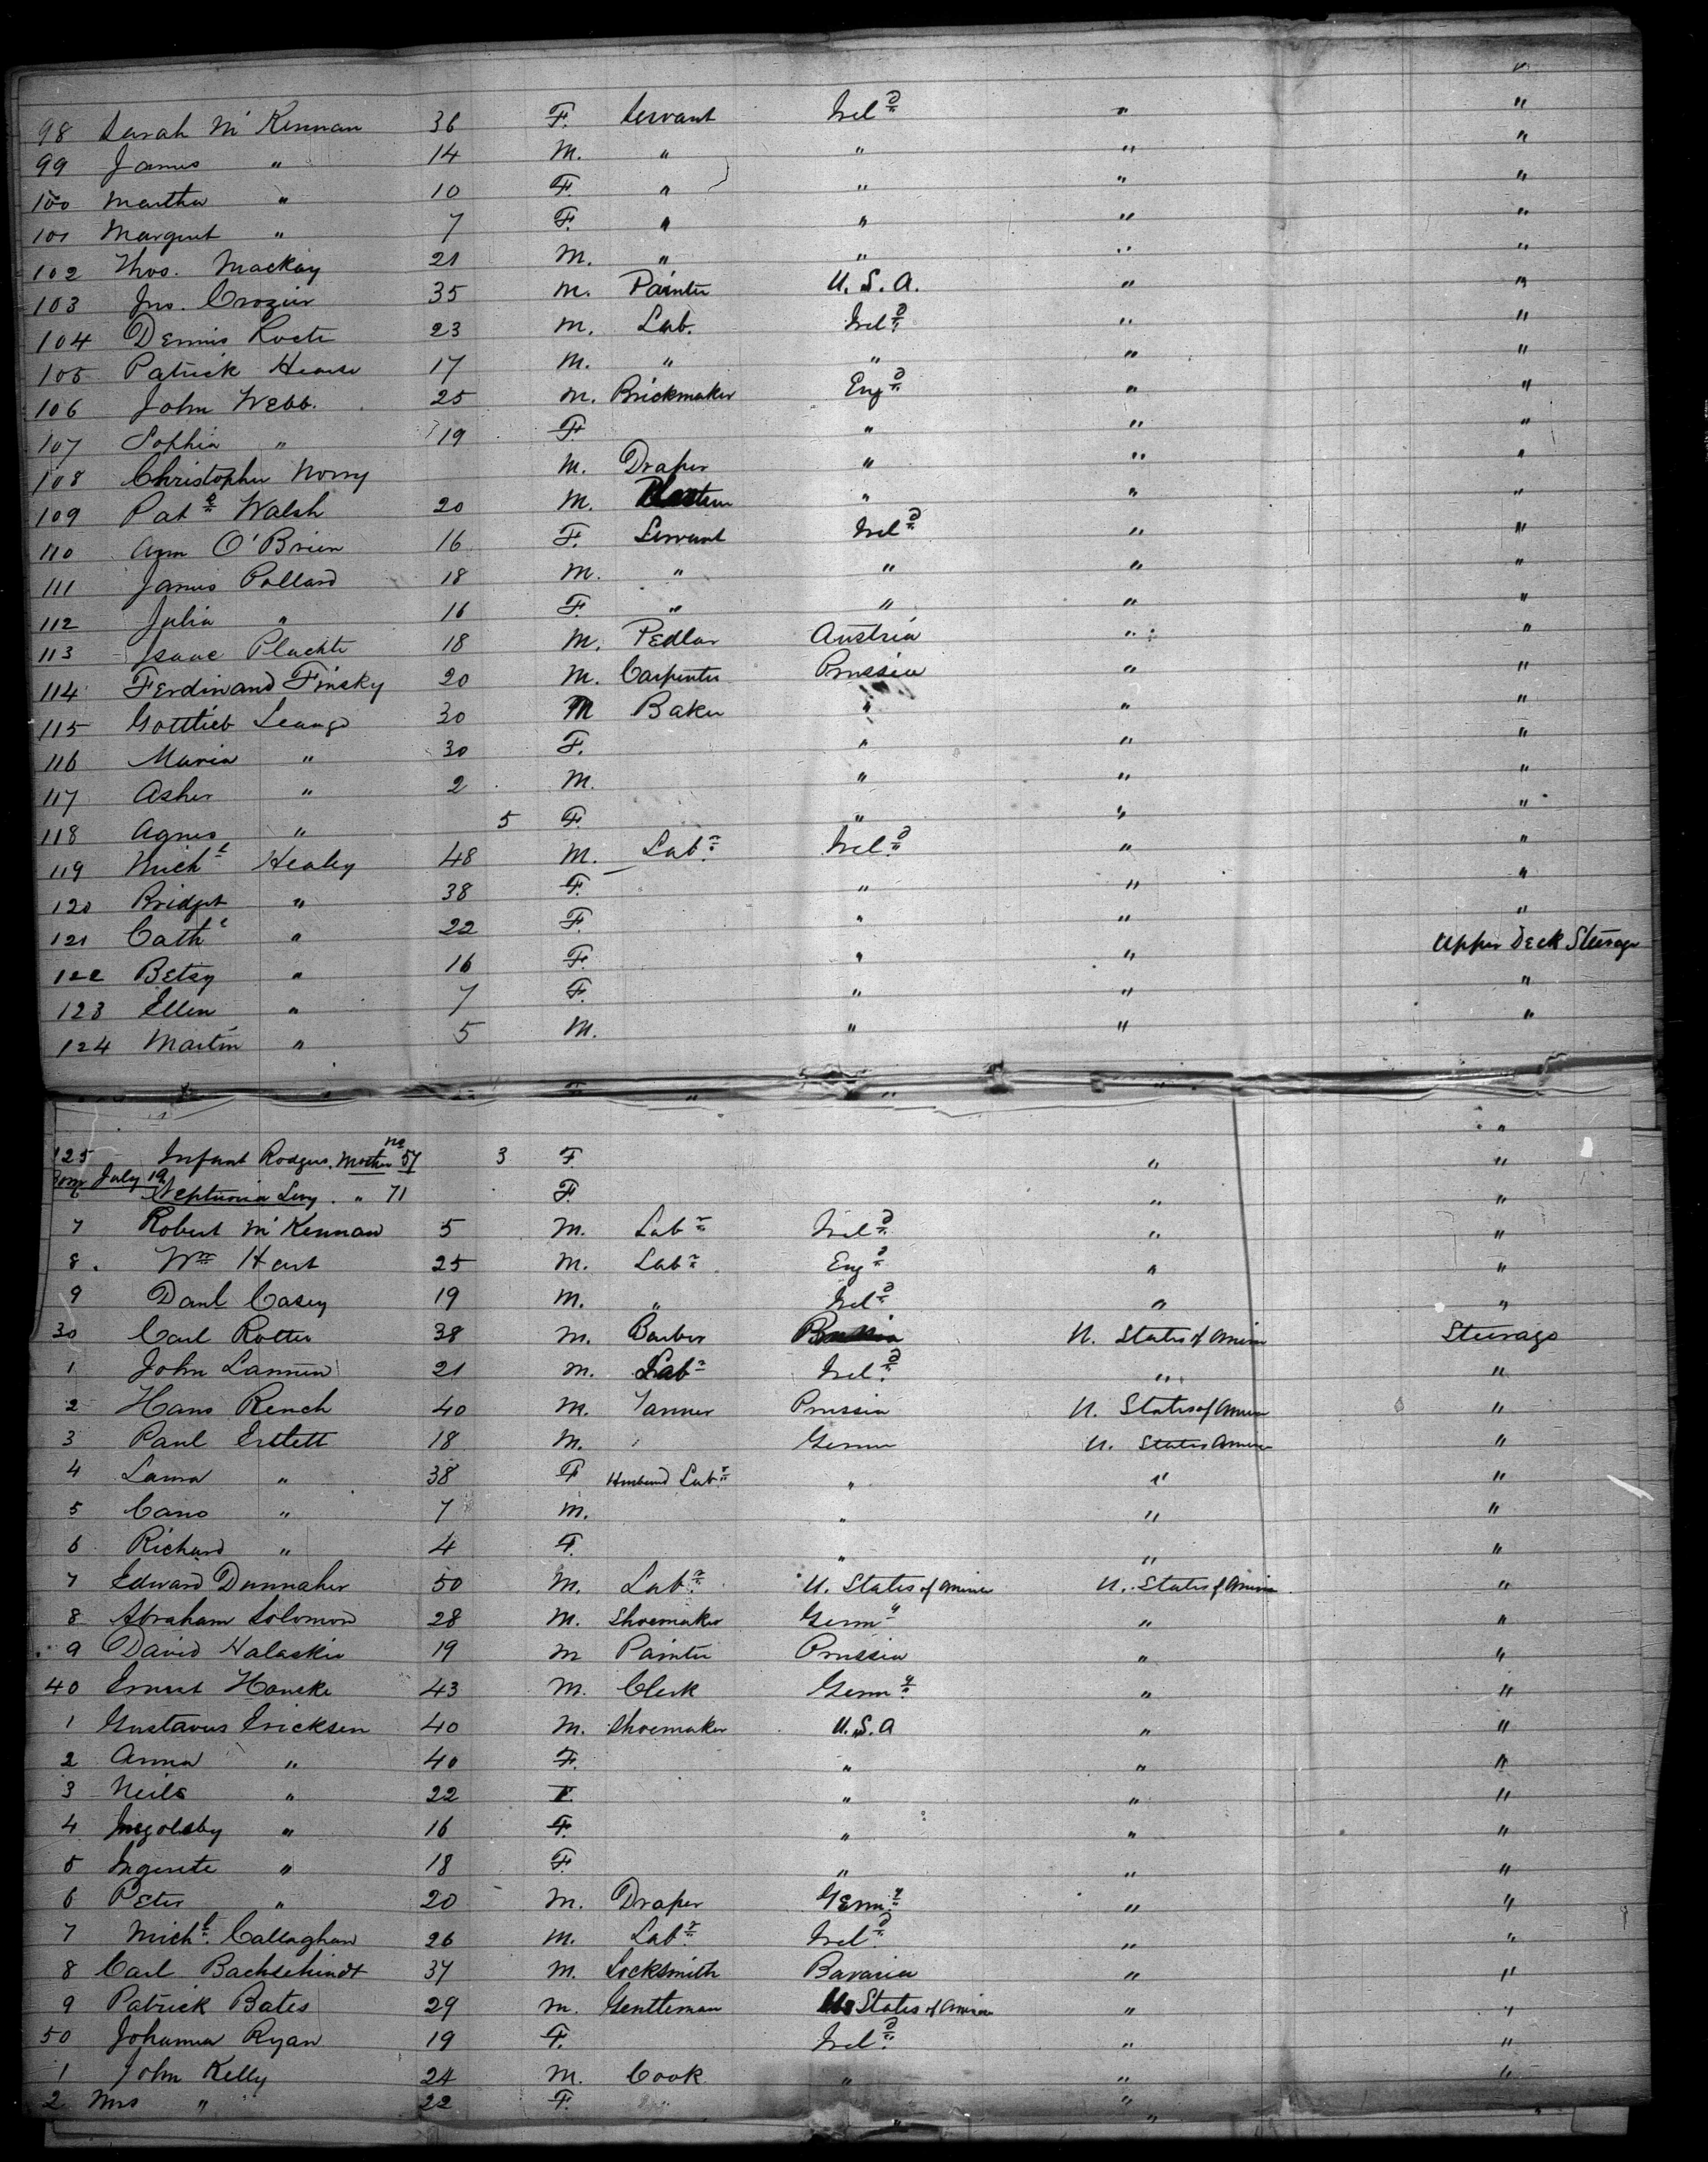 "
98 Sarah McKennan 36 F. Servant Irel.d " "
99 James " 14 M. " " " "
100 Martha " 10 F. " " " "
101 Margret " 7 F. " " " "
102 Thos. Mackay 21 M. " " " "
103 Jno. Crozier 35 M. Painter U.S.A. " "
104 Dennis 23 M. Lab. Irel.d " "
105 Patrick 17 M. " " " "
106 John Webb. 25 M. Brickmaker Eng.d " "
107 Sophia " 19 F " " "
108 Christopher M. Draper " " "
109 Pat.k Walsh 20 M. " " "
110 Ann O'Brien 16 F. Servant Irel.d " "
111 James Pollard 18 M. " " " "
112 Julia " 16 F. " " " "
113 Isaac Plachte 18 M. Pedlar Austria " "
114 Ferdinand Finsky 20 M. Carpenter Prussia " "
115 Gottlieb 30 M Baker " " "
116 Maria " 30 F. " " "
117 Asher " 2 M. " " "
118 Agnes " 5 F. " " "
119 Mich.l Healey 48 M. Lab.r Irel.d " "
120 Bridget " 38 F. " " "
121 Cath.e " 22 F. " " "
122 Betsy " 16 F. " " Upper Deck Steerage
123 Ellen " 7 F. " " "
124 Martin " 5 M. " " "
125 Infant Rodgers. Mother no 57 3 F " "
Born July 19 6 Neptunia Levy. " 71 F. " "
7 Robert McKennan 5 M. Lab.r Irel.d " "
8. Wm Hart 25 M. Lab.r Eng.d " "
9 Danl Casey 19 M. " Irel.d " "
30 Carl Rotter 38 M. Barber U. States of Amera Steerage
1 John Lannen 21 M. Lab.r Irel.d " "
2 Hans Rench 40 M. Tanner Prussia U. States of Amera "
3 Paul 18 M. U. States Amera "
4 " 38 F Husband Lab.r " " "
5 " 7 M. " " "
6 Richard " 4 F. " " "
7 Edward Dunnaher 50 M. Lab.r U. States of Amera U. States of Amera "
8 Abraham Solomon 28 M. Shoemaker Germ.y " "
9 David 19 M Painter Prussia " "
40 Ernest 43 M. Clerk Germ.y " "
1 Gustavus Ericksen 40 M. Shoemaker U.S.A " "
2 Anna " 40 F. " " "
3 Neils " 22 F. " " "
4 Ingolsby " 16 F. " " "
5 " 18 F. " " "
6 Peter " 20 M. Draper Germ.y " "
7 Mich.l Callaghan 26 M. Lab.r Irel.d " "
8 Carl 37 M. Locksmith Bavaria " "
9 Patrick Bates 29 M. Gentleman U. States of Amera " "
50 Johanna Ryan 19 F. Irel.d " "
1 John Kelly 24 M. Cook " " "
2 Mrs " 22 F. " "